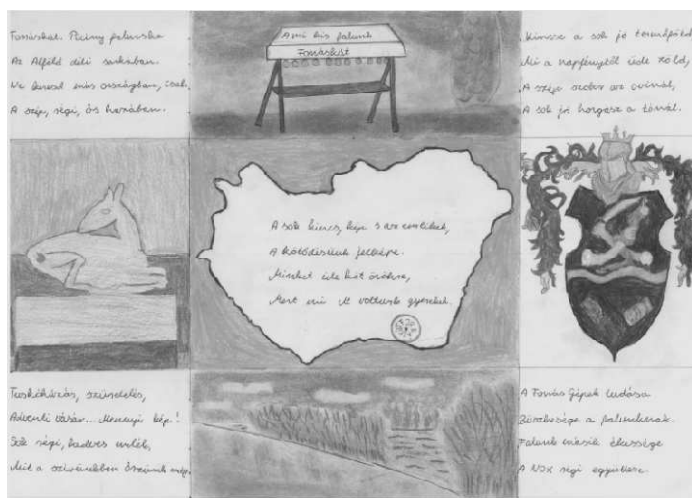 Forráskút. Piciny falucska
Az Alföld déli sarkában.
Ne keresd más országban, csak
A szép, régi, ős hazában.
A mi kis falunk
Forráskút
Kincse a sok jó termőföld
Mi a napfénytől üde zöld,
A szép szobor az ovinál,
A sok jó horgász a tónál.
A sok kincs képe s az emlékek,
A kötődésünk jelképe.
Minket ide köt örökre,
Mert mi itt voltunk gyerekek.
szüretelés,
Adventi vásár... Mennyi kép!
Sok régi, kedves emlék,
Mit a szívünkben őrzünk még.
A Forrás Gépek tudása
Büszkesége a falunknak.
Falunk másik ékessége
A NOX régi együttese.